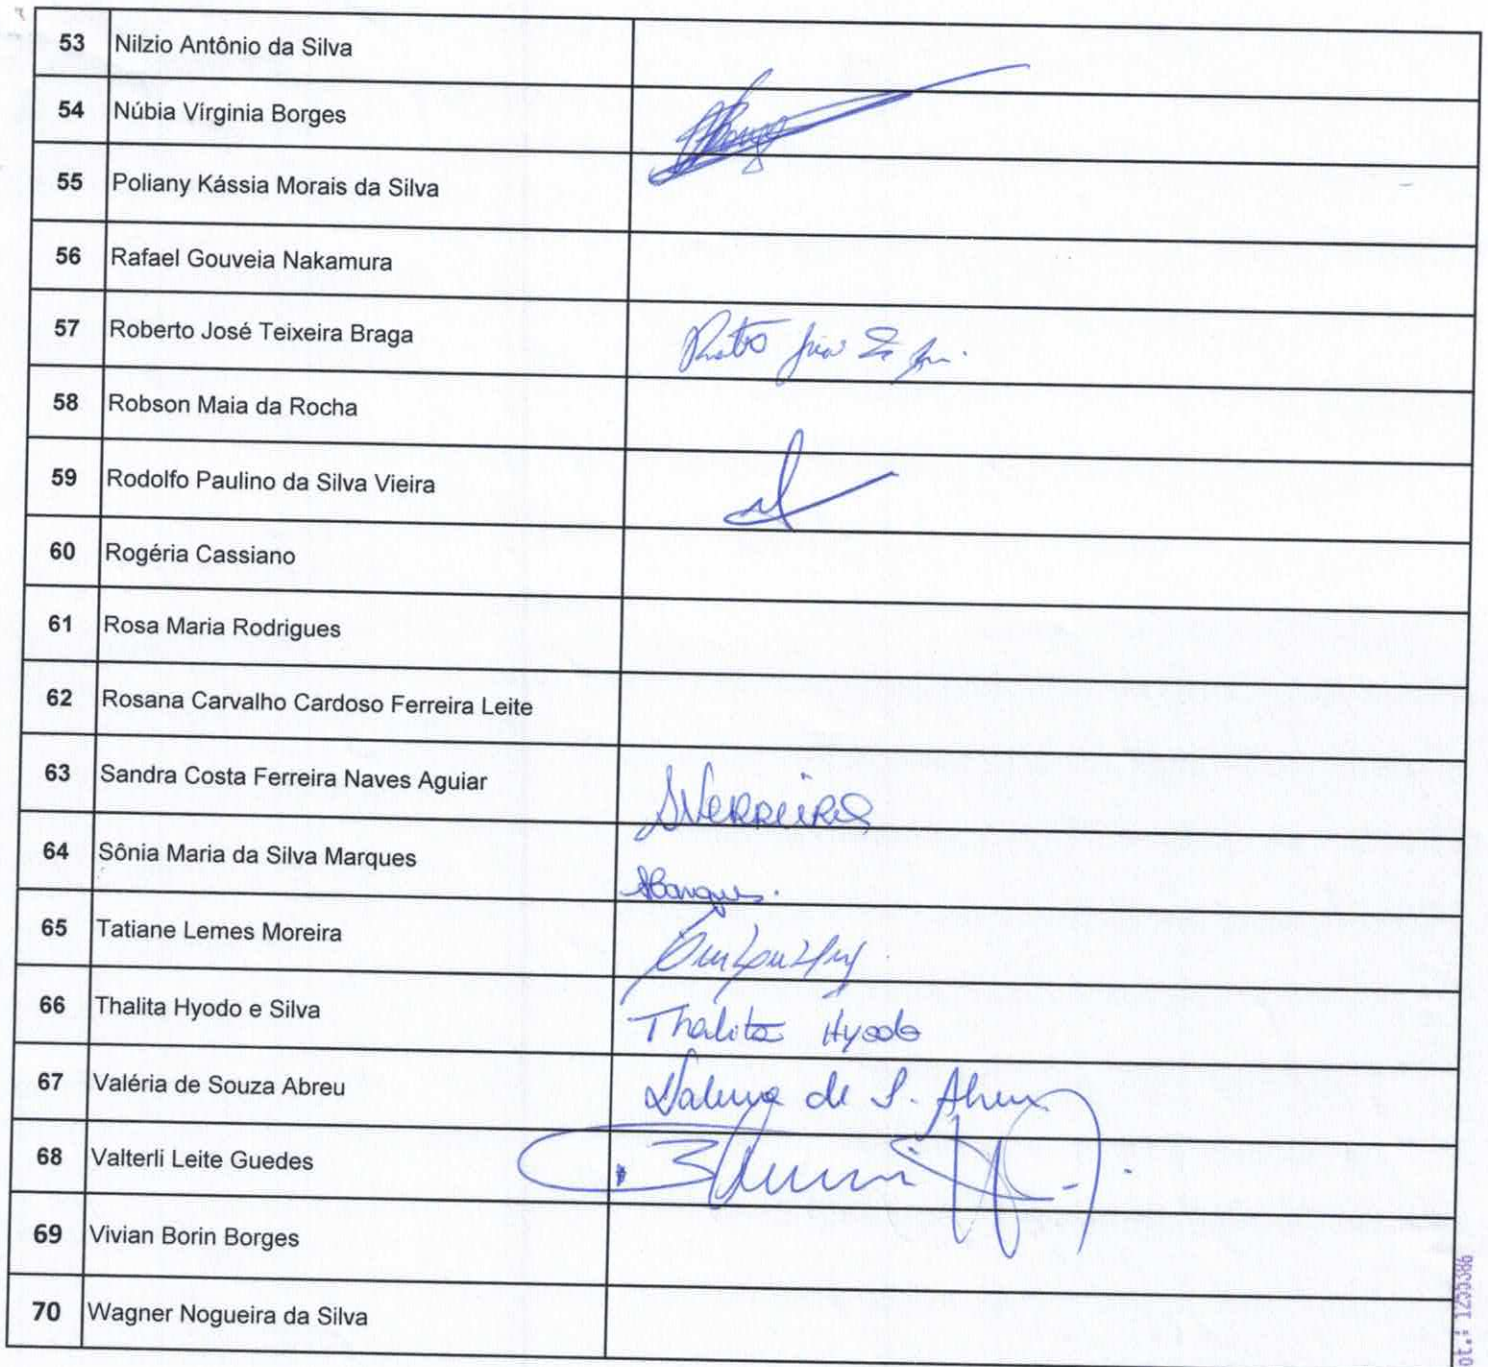 53 Nilzio Antônio da Silva
54 Núbia Vírginia Borges
55 Poliany Kássia Morais da Silva
56 Rafael Gouveia Nakamura
57 Roberto José Teixeira Braga
58 Robson Maia da Rocha
59 Rodolfo Paulino da Silva Vieira
60 Rogéria Cassiano
61 Rosa Maria Rodrigues
62 Rosana Carvalho Cardoso Ferreira Leite
63 Sandra Costa Ferreira Naves Aguiar
64 Sônia Maria da Silva Marques
65 Tatiane Lemes Moreira
66 Thalita Hyodo e Silva Thalita Hyodo
67 Valéria de Souza Abreu Valeria de S. Abreu
68 Valterli Leite Guedes
69 Vivian Borin Borges
70 Wagner Nogueira da Silva